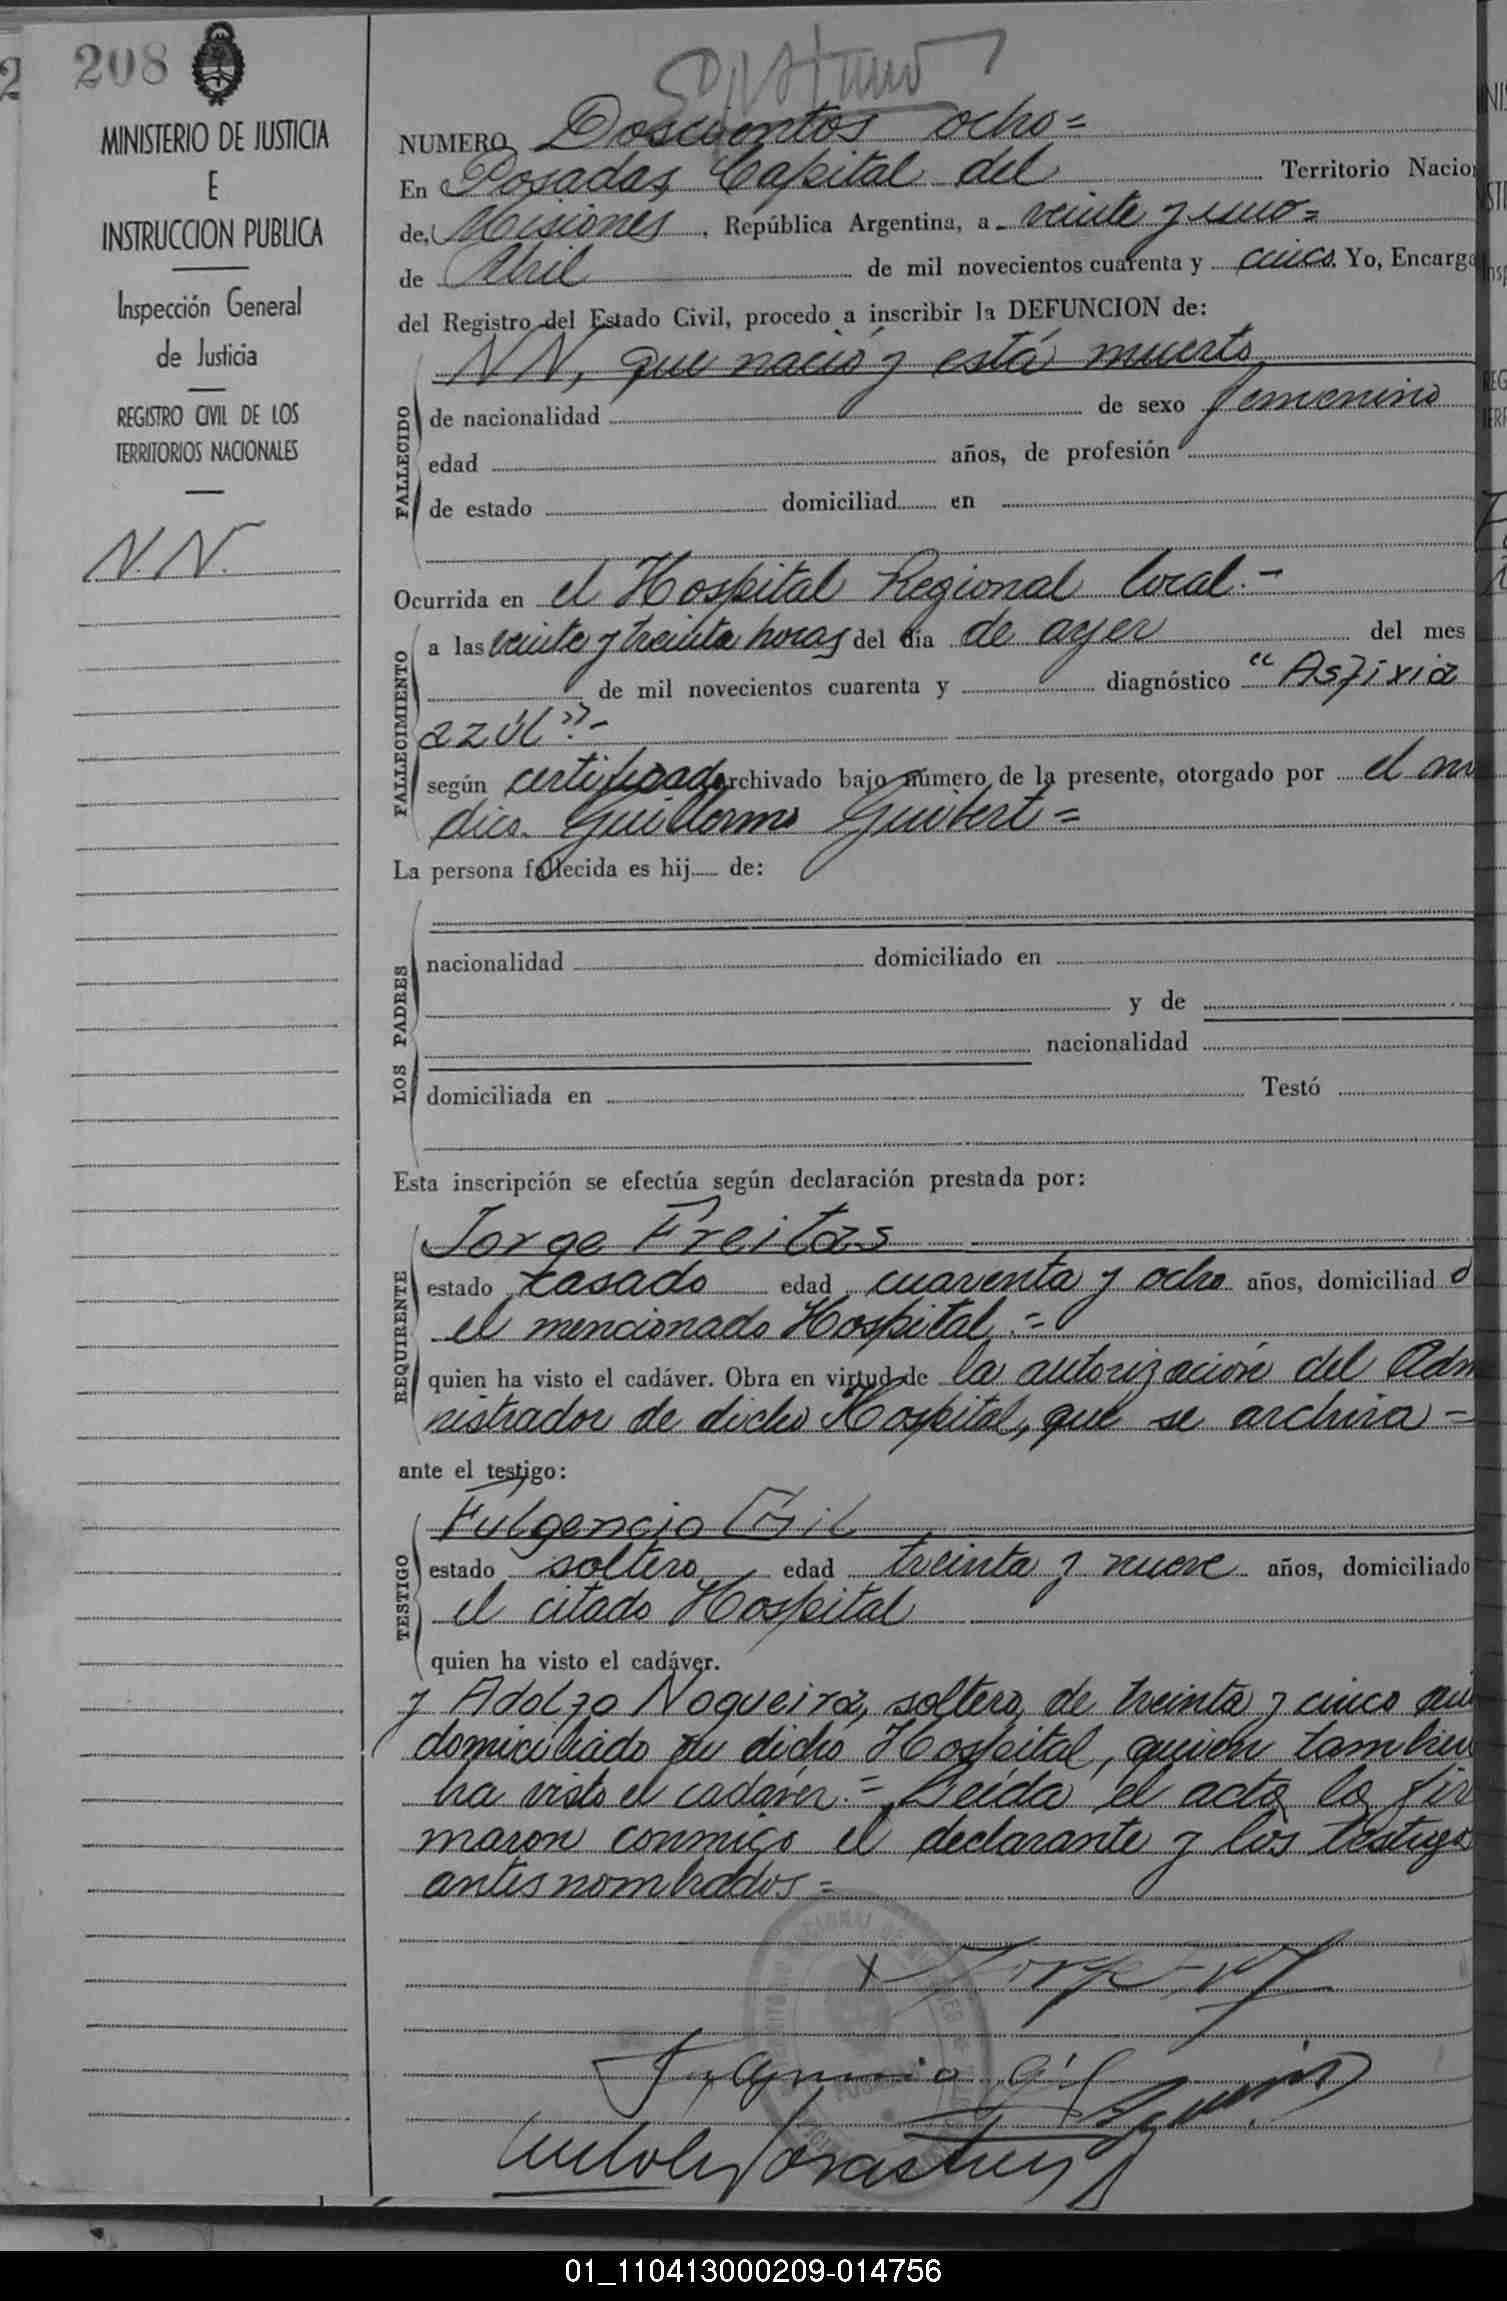 208
MINISTERIO DE JUSTICIA
E
INSTRUCCION PUBLICA
Inspección General
de Justicia
REGISTRO CIVIL DE LOS
TERRITORIOS NACIONALES
N.N.
NUMERO Doscientos ocho=
En Posadas, Capital del Territorio Nacio
de, Misiones, República Argentina, a veinte y uno=
de Abril de mil novecientos cuarenta y cinco. Yo, Encarga
del Registro del Estado Civil, procedo a inscribir la DEFUNCION de:
NN, que nació y está muerto
FALLECIDO
de nacionalidad de sexo femenino
edad años, de profesión
de estado domiciliad en
Ocurrida en el Hospital Regional local.-
FALLECIMIENTO
a las veinte y treinta horas del día de ayer del mes
de mil novecientos cuarenta y diagnóstico "Asfixia
azul".-
según certificado archivado bajo número de la presente, otorgado por el mé
dico Guillermo Guibert=
La persona fallecida es hij de:
LOS PADRES
nacionalidad domiciliado en
y de
nacionalidad
domiciliada en Testó
Esta inscripción se efectúa según declaración prestada por:
REQUIRENTE
Jorge Freitas
estado casado edad cuarenta y ocho años, domiciliad o
el mencionado Hospital.=
quien ha visto el cadáver. Obra en virtud de la autorización del Adm
nistrador de dicho Hospital, que se archiva=
ante el testigo:
TESTIGO
Fulgencio Gil
estado soltero edad treinta y nueve años, domiciliado
el citado Hospital
quien ha visto el cadáver.
y Adolfo Nogueira, soltero, de treinta y cinco
domiciliado en dicho Hospital, quien tambien
ha visto el cadáver.= Leída el acta, la fir
maron conmigo el declarante y los testigos
antes nombrados=
Fulgencio Gil
01_110413000209-014756